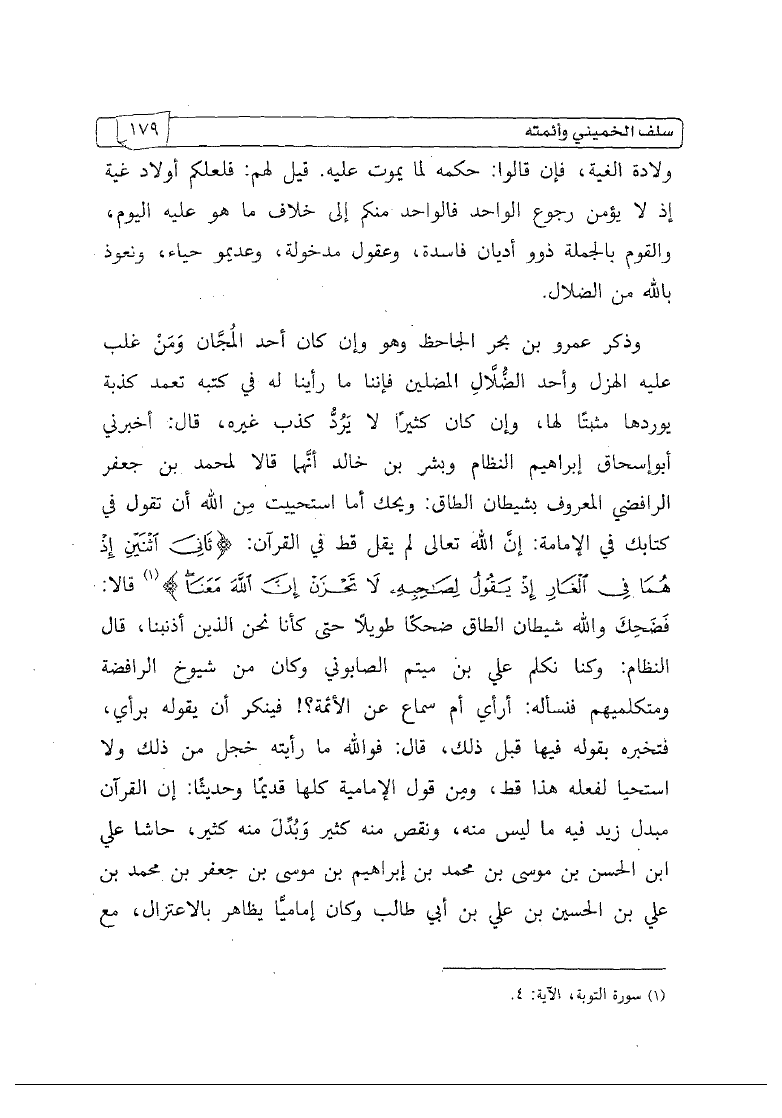 سلف الخميني وأئمته ١٧٩
ولادة الغية، فإن قالوا: حكمه لما يموت عليه. قيل لهم: فلعلكم أولاد غية
إذ لا يؤمن رجوع الواحد فالواحد منكم إلى خلاف ما هو عليه اليوم،
والقوم بالجملة ذوو أديان فاسدة، وعقول مدخولة، وعديمو حياء، ونعوذ
بالله من الضلال.
وذكر عمرو بن بحر الجاحظ وهو وإن كان أحد المُجَّان وَمَنْ غلب
عليه الهزل وأحد الضُّلَّالِ المضلين فإننا ما رأينا له في كتبه تعمد كذبة
يوردها مثبتًا لها، وإن كان كثيرًا لا يَرُدُّ كذب غيره، قال: أخبرني
أبوإسحاق إبراهيم النظام وبشر بن خالد أنَّهما قالا لمحمد بن جعفر
الرافضي المعروف بشيطان الطاق: ويحك أما استحييت مِن الله أن تقول في
كتابك في الإمامة: إنَّ الله تعالى لم يقل قط في القرآن: ﴿ثَانِيَ ٱثْنَيْنِ إِذْ
هُمَا فِي ٱلْغَارِ إِذْ يَقُولُ لِصَٰحِبِهِۦ لَا تَحْزَنْ إِنَّ ٱللَّهَ مَعَنَا﴾(١) قالا:
فَضَحِكَ والله شيطان الطاق ضحكًا طويلًا حتى كأنا نحن الذين أذنبنا، قال
النظام: وكنا نكلم علي بن ميتم الصابوني وكان من شيوخ الرافضة
ومتكلميهم فنسأله: أرأي أم سماع عن الأئمة؟! فينكر أن يقوله برأي،
فتخبره بقوله فيها قبل ذلك، قال: فوالله ما رأيته خجل من ذلك ولا
استحيا لفعله هذا قط، ومِن قول الإمامية كلها قديمًا وحديثًا: إن القرآن
مبدل زيد فيه ما ليس منه، ونقص منه كثير وَبُدِّلَ منه كثير، حاشا علي
ابن الحسن بن موسى بن محمد بن إبراهيم بن موسى بن جعفر بن محمد بن
علي بن الحسين بن علي بن أبي طالب وكان إماميًّا يظاهر بالاعتزال، مع
(١) سورة التوبة، الآية: ٤.